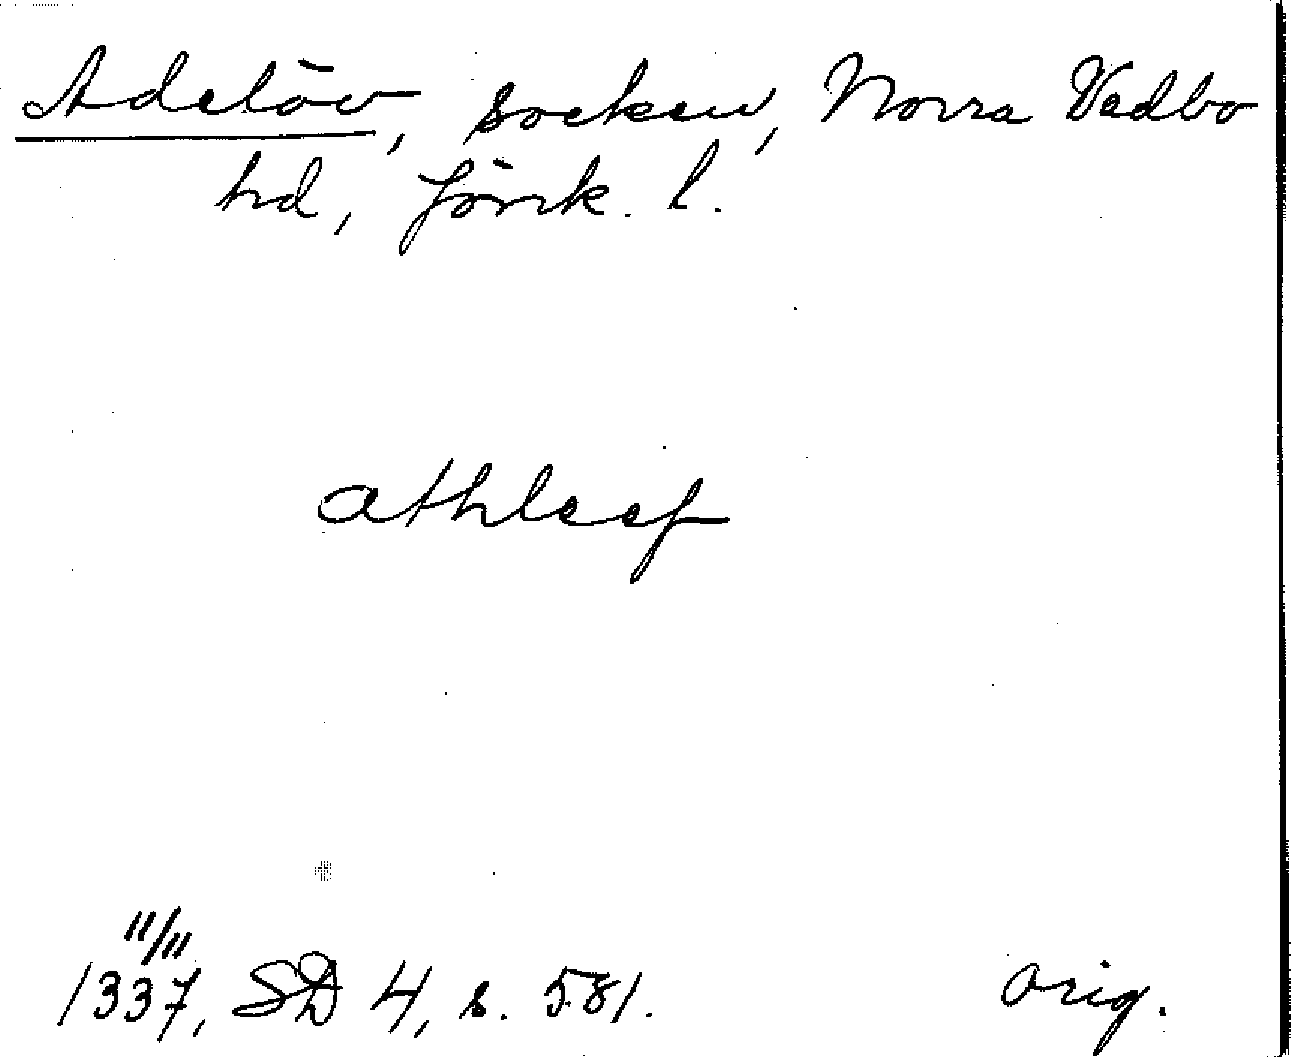 Adelöv, socken, Norra Vedbo
hd, Jönk. l.
athleef
11/11
1337, SD 4, s. 581.
orig.